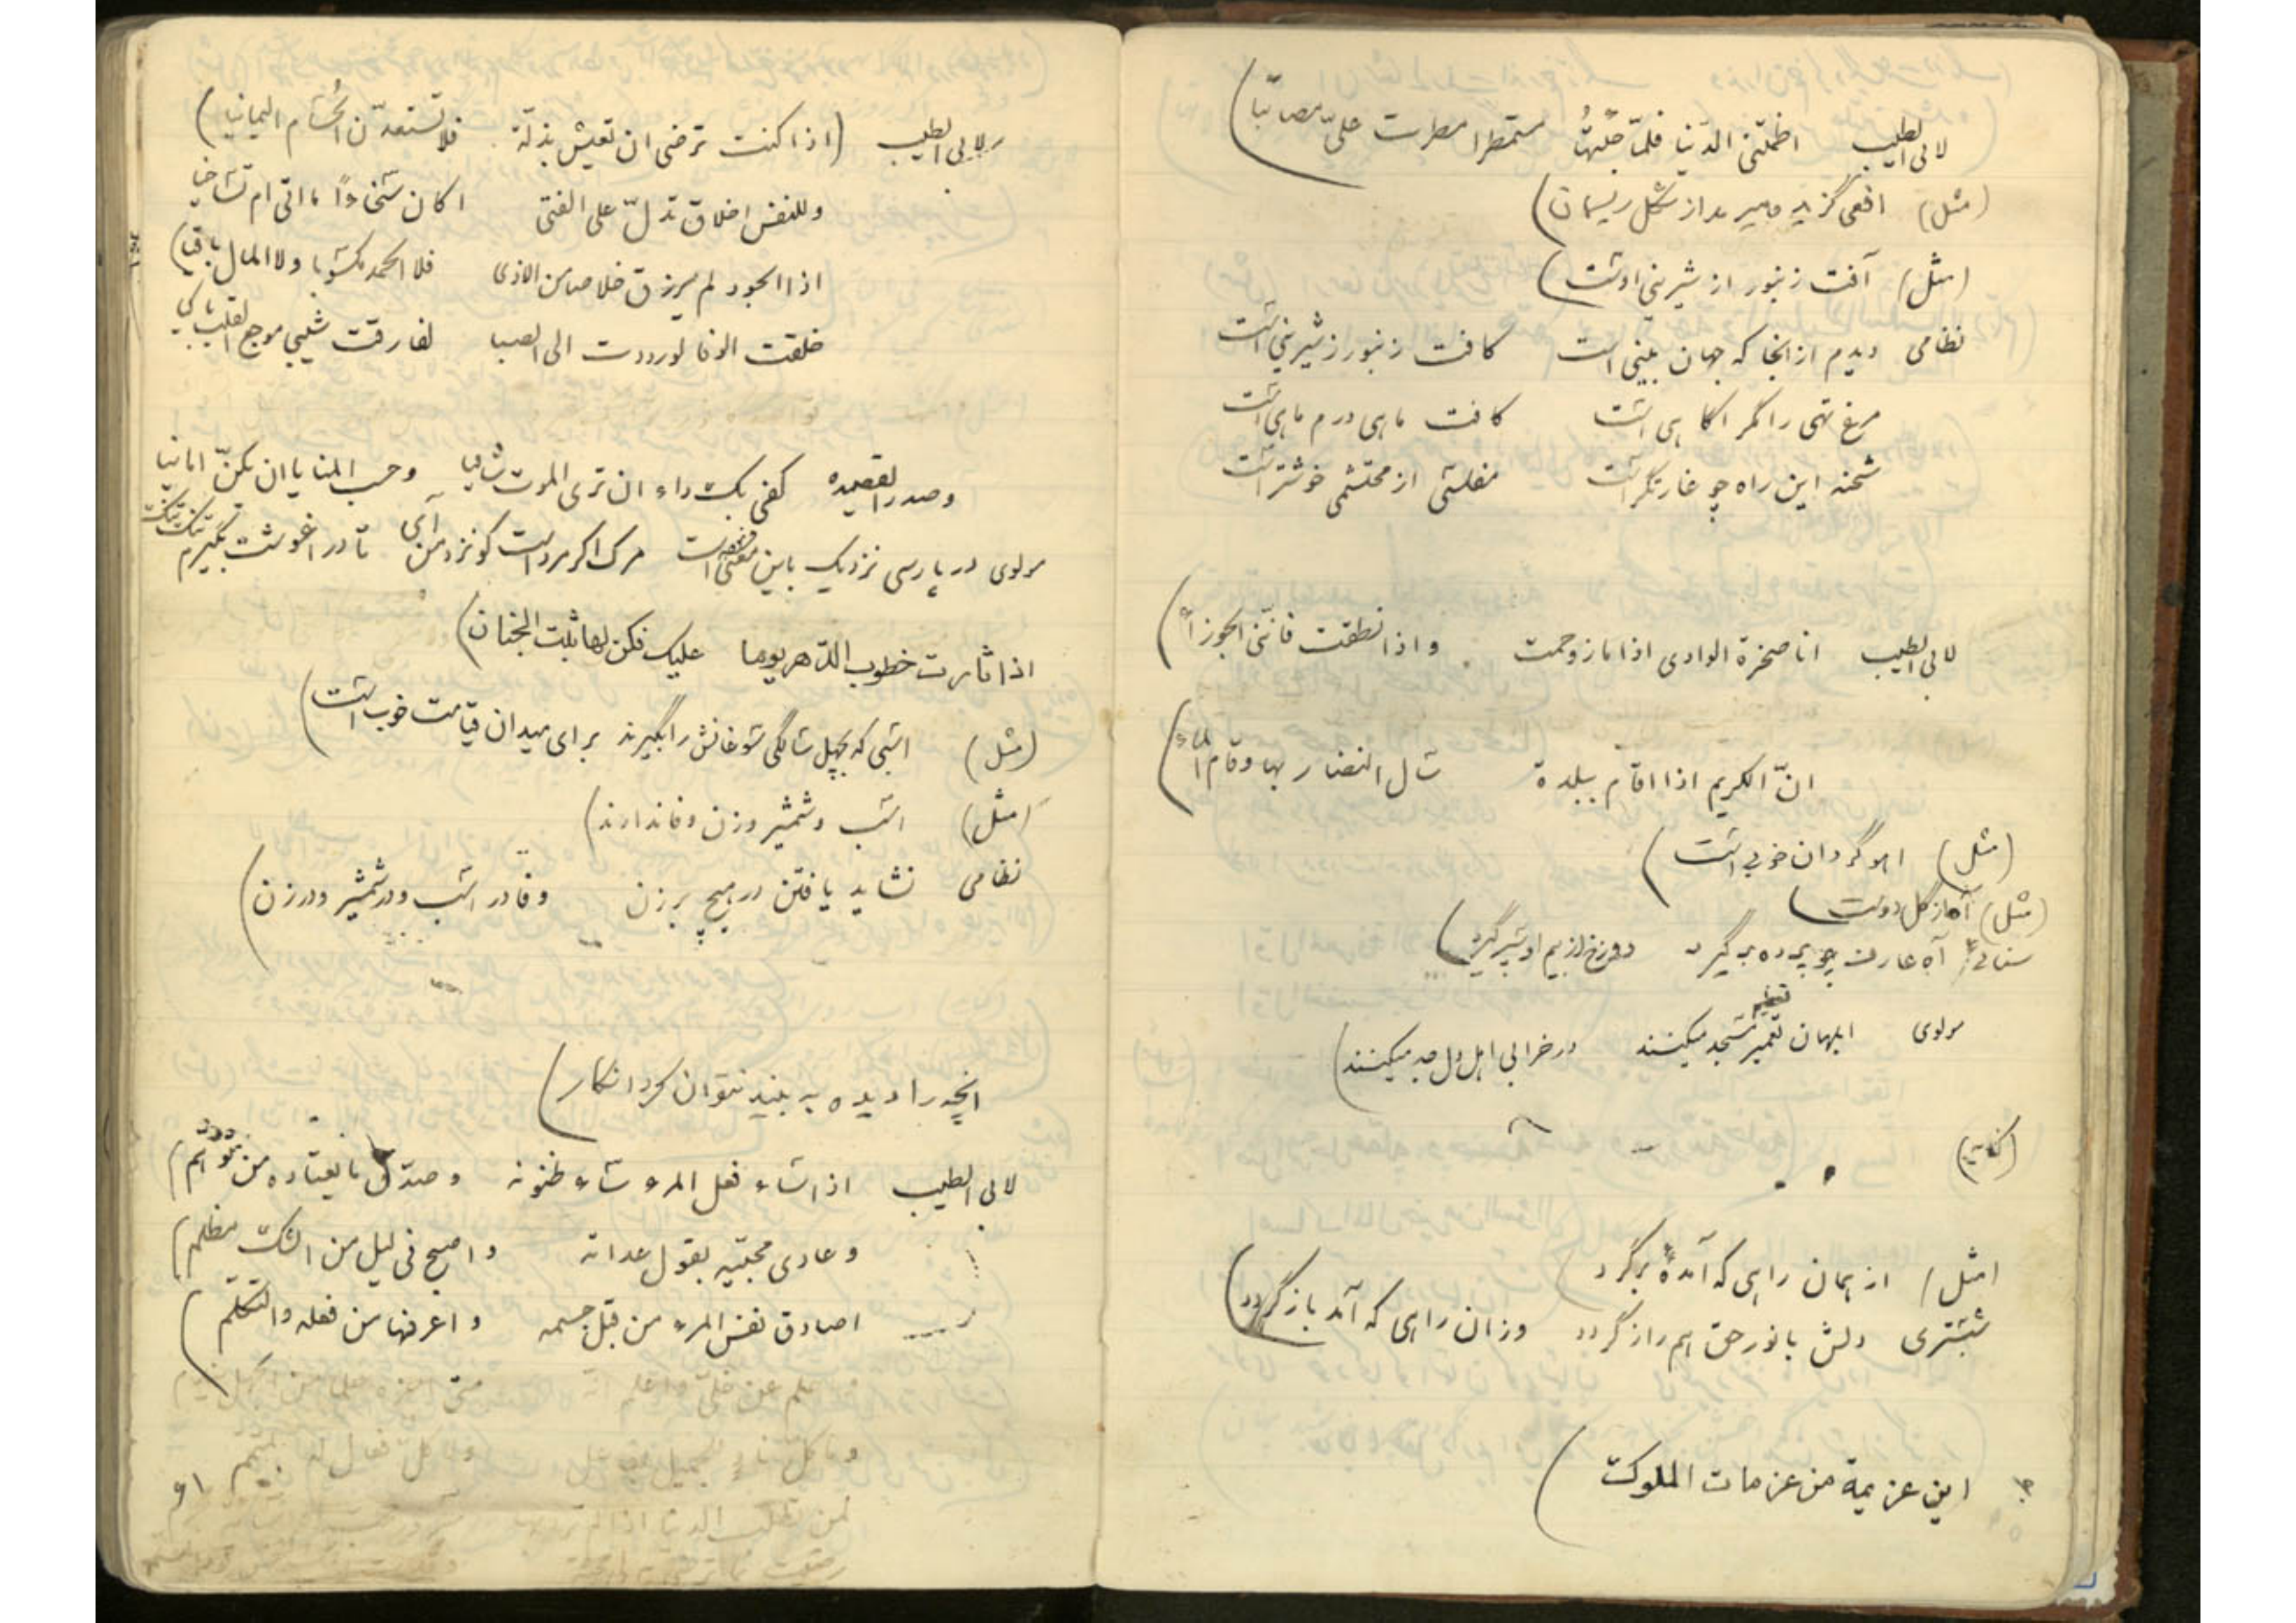 لابی الطیب اظمتنی الدنیا فلما جئتها مستمطرا مطرت علیّ مصائبا)
(مثل) افعی گزیده میترسد از شکل ریسمان)
(مثل) آفت زنبور از شیرینی اوست)
نظامی دیدم از آنجا که جهان بینی است کافت زنبور ز شیرینی است
مرغ تهی را مگر اگاهی است کافت ماهی درم ماهی است
شحنه این راه چو غارتگر است مفلسی از محتشمی خوشتر است
لابی الطیب انا صخرة الوادی اذا ما زوحمت و اذا نطقت فاننی الجوزاء)
انّ الکریم اذا اقام ببلدة سال النضار بها وقام الماء)
(مثل) اهو گردان خوبی است)
(مثل) آه از گل دوست)
سنائی آه عارف چو پرده برگیرد دوزخ از بیم او سپر گیرد)
مولوی ابلهان تعمیر تعظیم مسجد میکنند در خرابی اهل دل جد میکنند)
(مثل) از همان راهی که آمدهٔ برگرد)
شبستری دلش با نور حق همراز گردد وزان راهی که آمد باز گردد)
این عزیمة من عزمات الملوک)
لابی الطیب (اذا کنت ترضی ان تعیش بذلّة فلا تستعدّن الحسام الیمانیا)
وللنفس اخلاق تدلّ علی الفتی اکان سخاءً ما اتی ام تساخیا
اذا الجود لم یرزق خلاصا من الاذی فلا الحمد مکسوبا ولا المال باقیا)
خلقت الوفا لو رددت الی الصبا لفارقت شیبی موجع القلب باکیا
وصدر القصیده کفی بک داء ان تری الموت شافیا وحسب المنایا ان یکنّ امانیا
مولوی در پارسی نزدیک باین معنی گفته است مرک اگر مرد است گو نزد من آی تا در اغوشش بگیرم تنک تنک
اذا ثارت خطوب الدّهر یوما علیک فکن لها ثبت الجنان)
(مثل) اسبی که بچهل سالگی سوغانش را بگیرند برای میدان قیامت خوب است)
(مثل) اسب و شمشیر و زن وفا ندارند)
نظامی نشاید یافتن در هیچ برزن وفا در اسب و در شمشیر و در زن)
انچه را دیده به بیند نتوان کرد انکار)
لابی الطیب اذا ساء فعل المرء ساء ظنونه وصدّق ما یعتاده من توهّم)
وعادی محبّیه بقول عداته واصبح فی لیل من الشک مظلم)
اصادق نفس المرء من قبل جسمه واعرفها من فعله والتکلّم)
واحلم عن خلّی واعلم انه متی اجزه حلما عن الجهل یندم
وما کل فعال له بمتمم
لمن تطلب الدنیا اذا لم ترد بها
۹۱